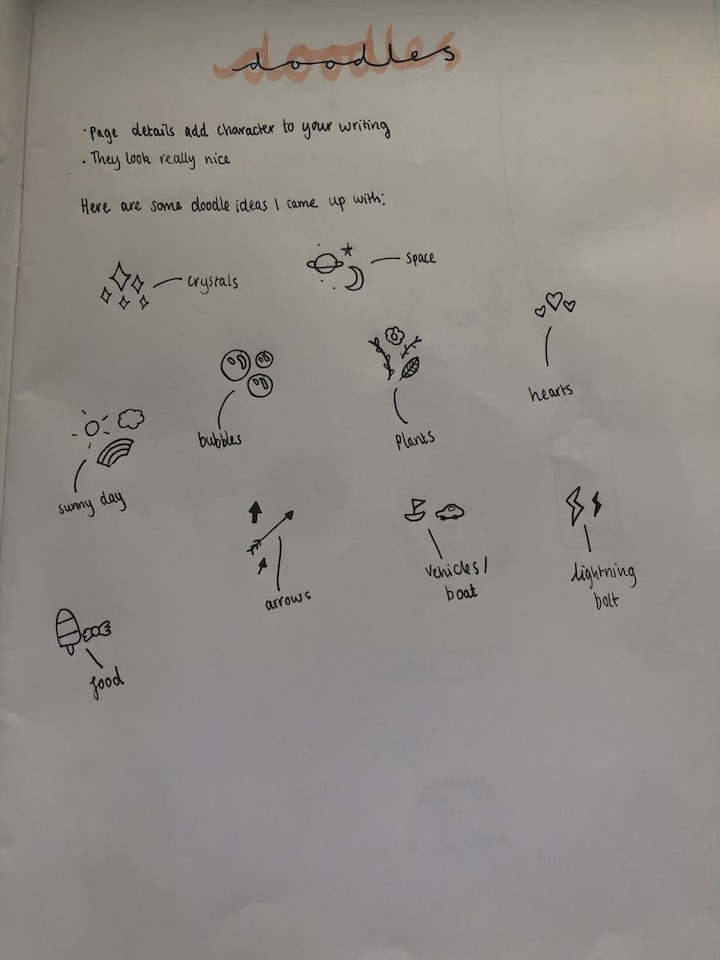 doodles
· Page details add character to your writing
. They look really nice
Here are some doodle ideas I came up with:
crystals
space
hearts
bubbles
plants
sunny day
arrows
vehicles/
boat
lightning
bolt
food